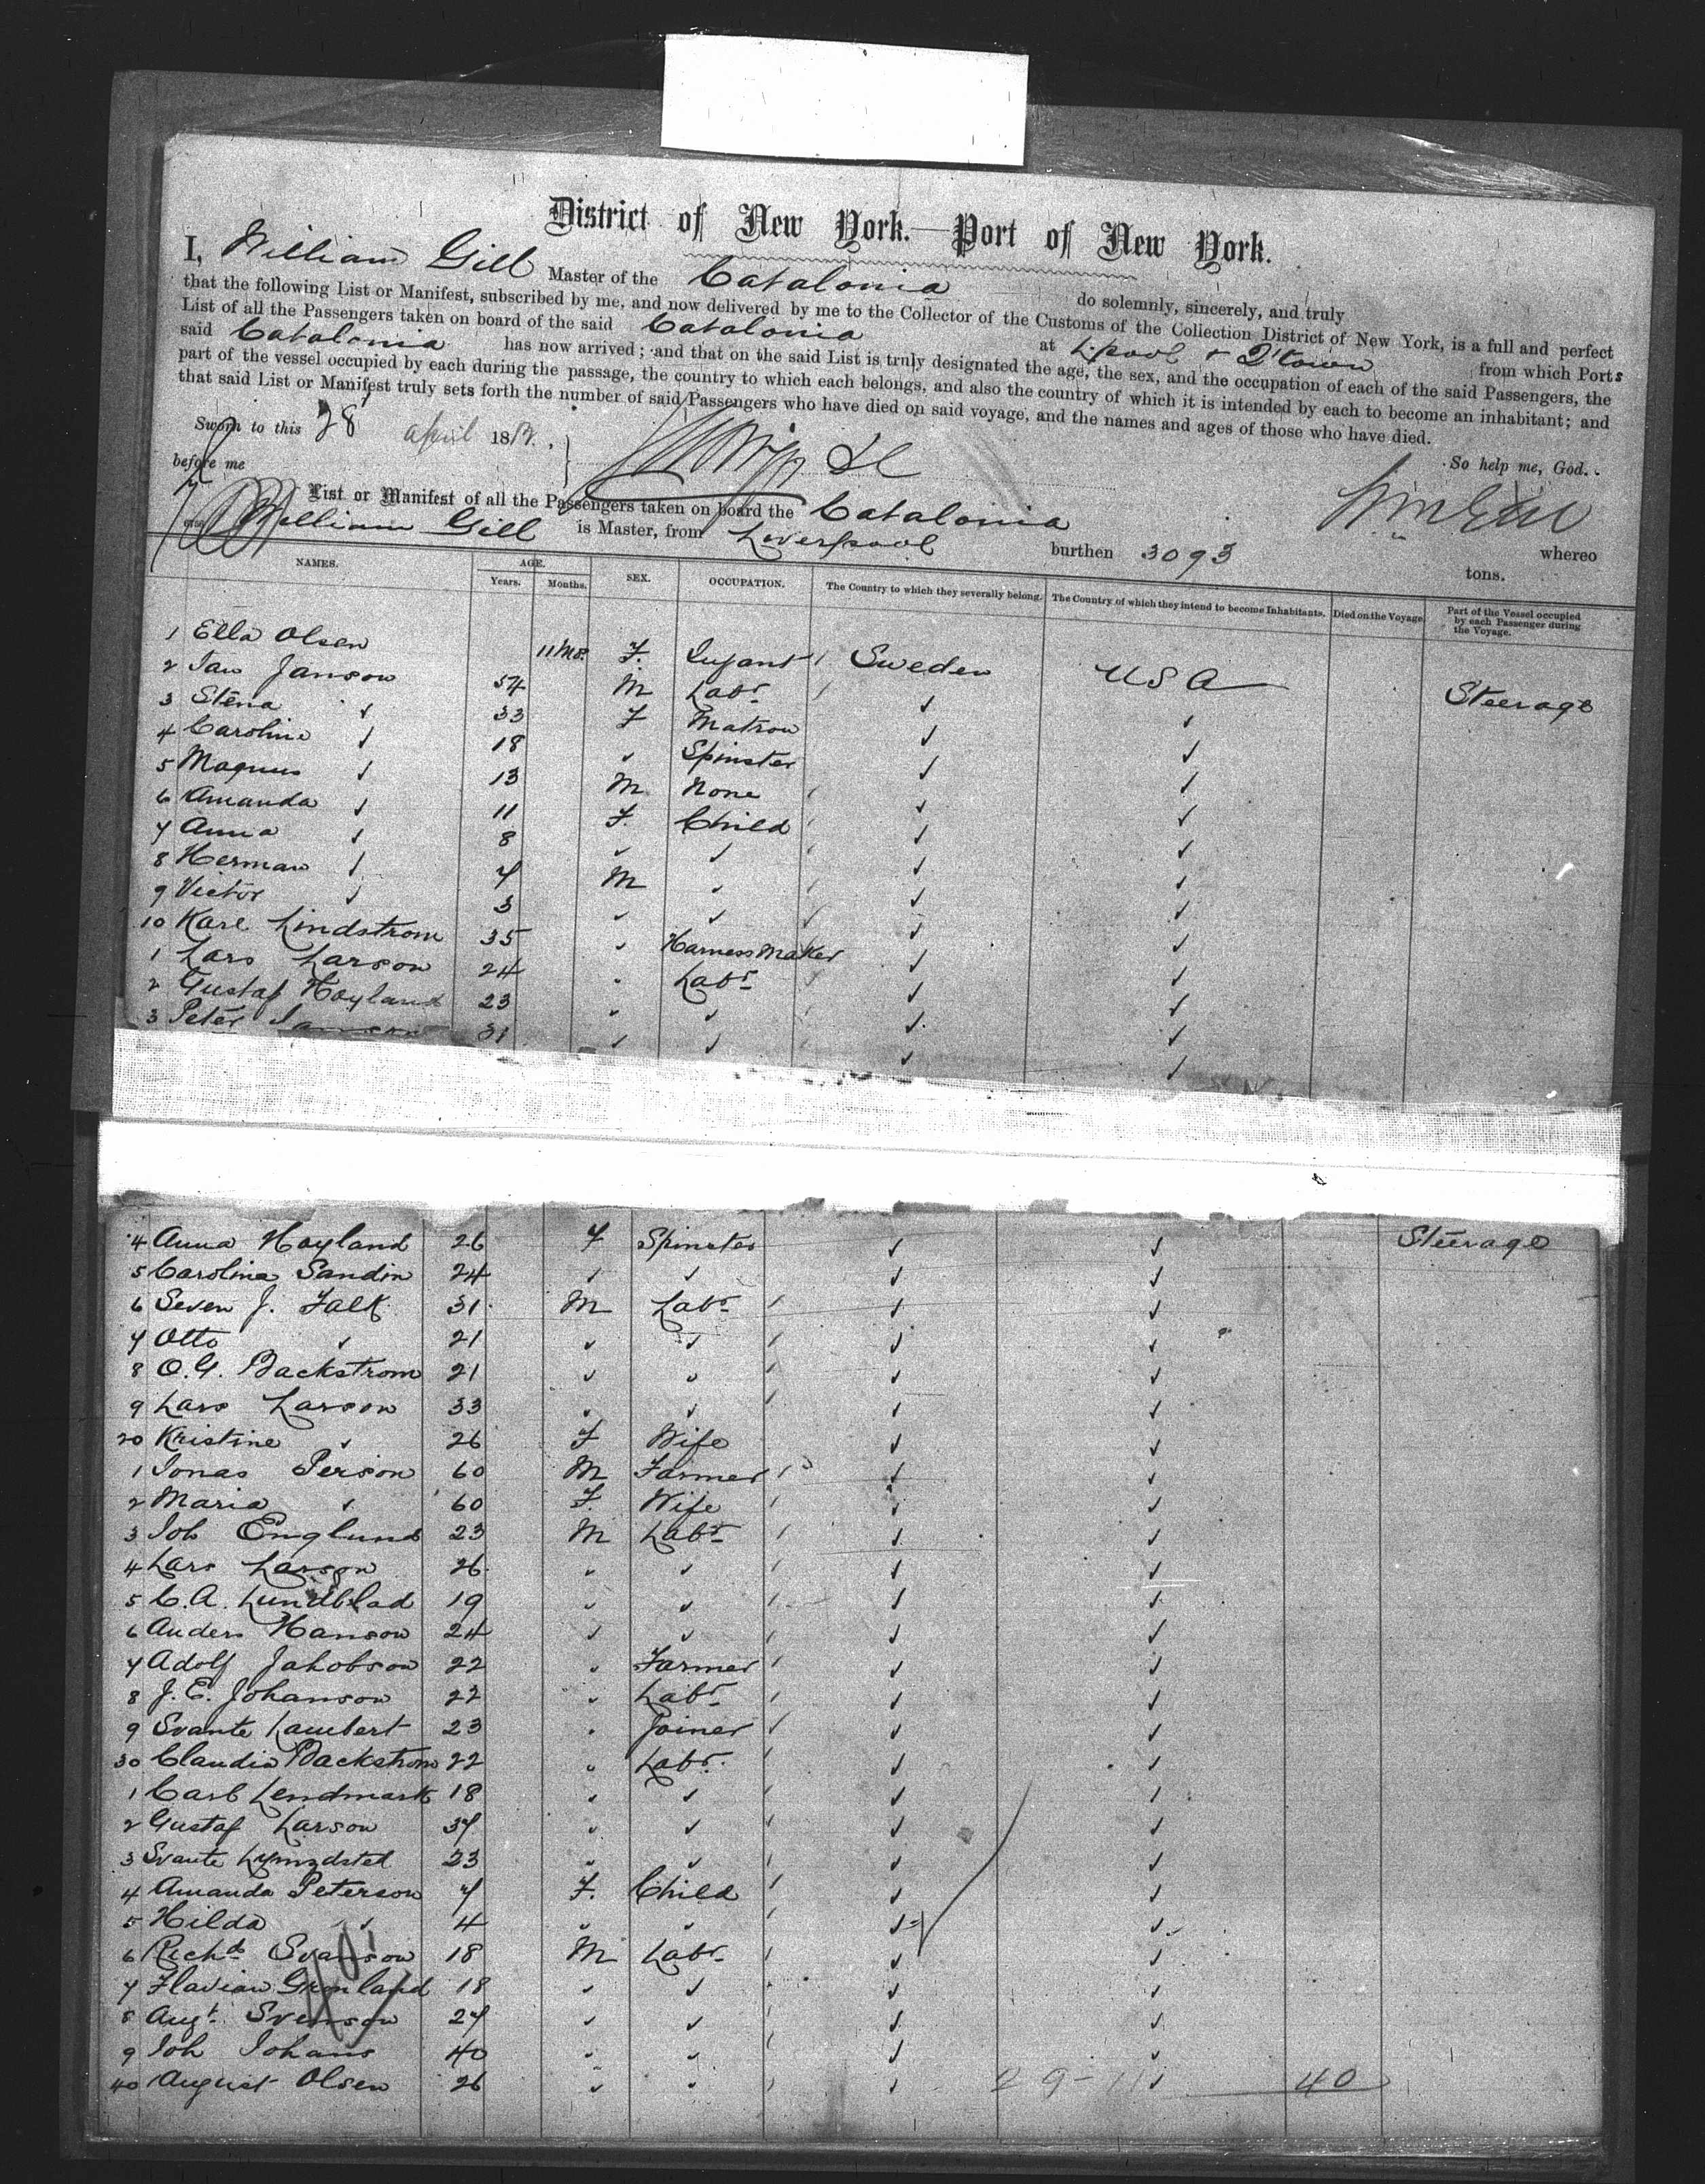 District of New York.—Port of New York.
I, William Gill Master of the Catalonia do solemnly, sincerely, and truly
that the following List or Manifest, subscribed by me, and now delivered by me to the Collector of the Customs of the Collection District of New York, is a full and perfect
List of all the Passengers taken on board of the said Catalonia at L'pool & Q'town from which Ports
said Catalonia has now arrived; and that on the said List is truly designated the age, the sex, and the occupation of each of the said Passengers, the
part of the vessel occupied by each during the passage, the country to which each belongs, and also the country of which it is intended by each to become an inhabitant; and
that said List or Manifest truly sets forth the number of said Passengers who have died on said voyage, and the names and ages of those who have died.
Sworn to this 28 April 188 So help me, God.
before me
List or Manifest of all the Passengers taken on board the Catalonia whereo
William Gill is Master, from Liverpool burthen 3093 tons.
NAMES. AGE. Years. Months. SEX. OCCUPATION. The Country to which they severally belong. The Country of which they intend to become Inhabitants. Died on the Voyage. Part of the Vessel occupied by each Passenger during the Voyage.
1 Ella Olsen 11 Mos. F. Infant Sweden USA Steerage
2 Jan Janson 54 M Labr ✓ ✓
3 Stena ✓ 33 F Matron ✓ ✓
4 Caroline ✓ 18 ✓ Spinster ✓ ✓
5 Magnus ✓ 13 M None ✓ ✓
6 Amanda ✓ 11 F. Child ✓ ✓
7 Anna ✓ 8 ✓ ✓ ✓ ✓
8 Herman ✓ 7 M ✓ ✓ ✓
9 Victor ✓ 3 ✓ ✓ ✓ ✓
10 Karl Lindstrom 35 ✓ Harness Maker ✓ ✓
1 Lars Larson 24 ✓ Labr ✓ ✓
2 Gustaf Hoyland 23 ✓ ✓ ✓ ✓
3 Peter 31 ✓ ✓ ✓ ✓
4 Anna Hoyland 26 F Spinster ✓ ✓ Steerage
5 Carolina Sandin 24 ✓ ✓ ✓ ✓
6 Seven J. Falk 31 M Labr ✓ ✓
7 Otto ✓ 21 ✓ ✓ ✓ ✓
8 O.G. Backstrom 21 ✓ ✓ ✓ ✓
9 Lars Larson 33 ✓ ✓ ✓ ✓
20 Kristine ✓ 26 F Wife ✓ ✓
1 Jonas Person 60 M Farmer ✓ ✓
2 Maria ✓ 60 F. Wife ✓ ✓
3 Joh Englund 23 M Labr ✓ ✓
4 Lars Larson 26 ✓ ✓ ✓ ✓
5 C.A. Lundblad 19 ✓ ✓ ✓ ✓
6 Anders Hanson 24 ✓ ✓ ✓ ✓
7 Adolf Jahobson 22 ✓ Farmer ✓ ✓
8 J.E. Johanson 22 ✓ Labr ✓ ✓
9 Svante Lambert 23 ✓ Joiner ✓ ✓
30 Claudia Backstrom 22 ✓ Labr ✓ ✓
1 Carl Lendmark 18 ✓ ✓ ✓ ✓
2 Gustaf Larson 37 ✓ ✓ ✓ ✓
3 Svante 23 ✓ ✓ ✓ ✓
4 Amanda Peterson 7 F. Child ✓ ✓
5 Hilda ✓ 4 ✓ ✓ ✓ ✓
6 Richd Svanson 18 M Labr ✓ ✓
7 Flavian Gronland 18 ✓ ✓ ✓ ✓
8 Augt Svenson 27 ✓ ✓ ✓ ✓
9 Joh Johans 40 ✓ ✓ ✓ ✓
40 August Olsen 26 ✓ ✓ ✓ 29-11 ✓ 40